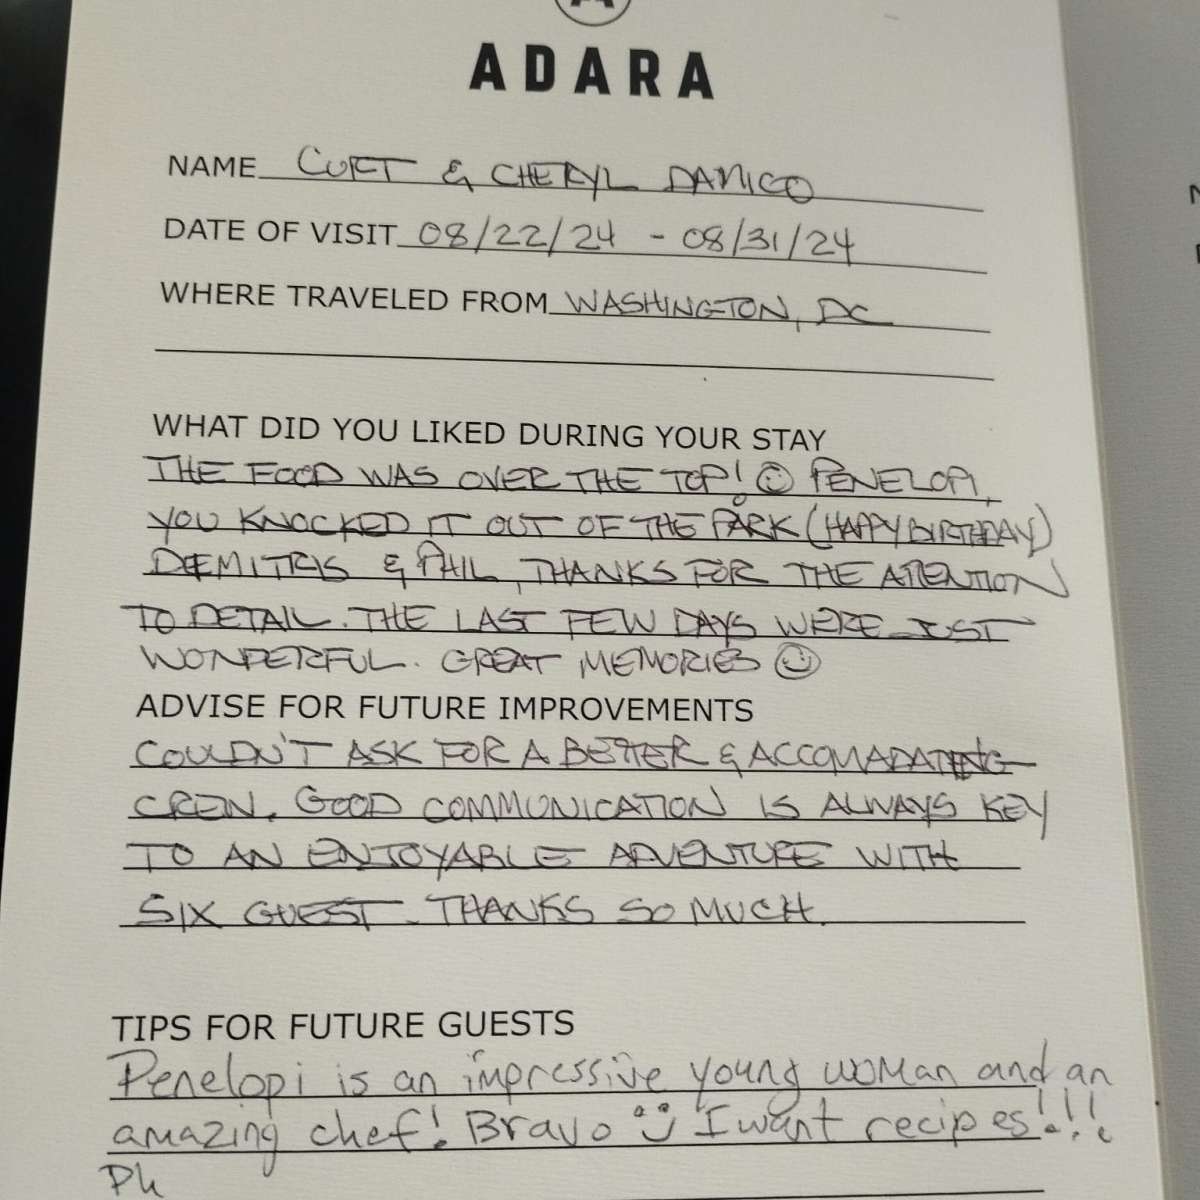 ADARA
NAME CURT & CHERYL DANICO
DATE OF VISIT 08/22/24 - 08/31/24
WHERE TRAVELED FROM WASHINGTON, DC
WHAT DID YOU LIKED DURING YOUR STAY
THE FOOD WAS OVER THE TOP! ☺ PENELOPI,
YOU KNOCKED IT OUT OF THE PARK (HAPPY BIRTHDAY)
DEMITRIS & PHIL, THANKS FOR THE ATTENTION
TO DETAIL. THE LAST FEW DAYS WERE JUST
WONDERFUL. GREAT MEMORIES ☺
ADVISE FOR FUTURE IMPROVEMENTS
COULDN'T ASK FOR A BETTER & ACCOMADATING
CREW. GOOD COMMUNICATION IS ALWAYS KEY
TO AN ENJOYABLE ADVENTURE WITH
SIX GUEST. THANKS SO MUCH.
TIPS FOR FUTURE GUESTS
Penelopi is an impressive young woman and an
amazing chef! Bravo ☺ I want recipes!!!